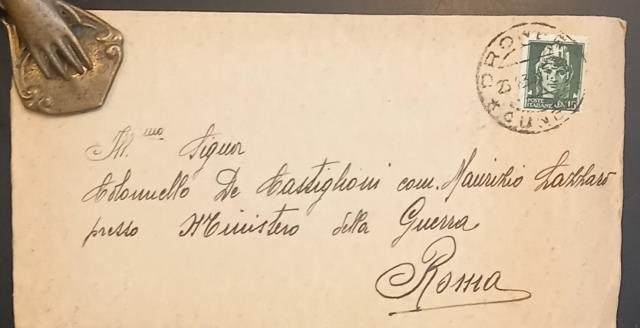 DRONERO
CUNEO
POSTE ITALIANE C. 15
Ill.mo Signor
Colonnello De Castiglioni com. Maurizio Lazzaro
presso Ministero della Guerra
Roma